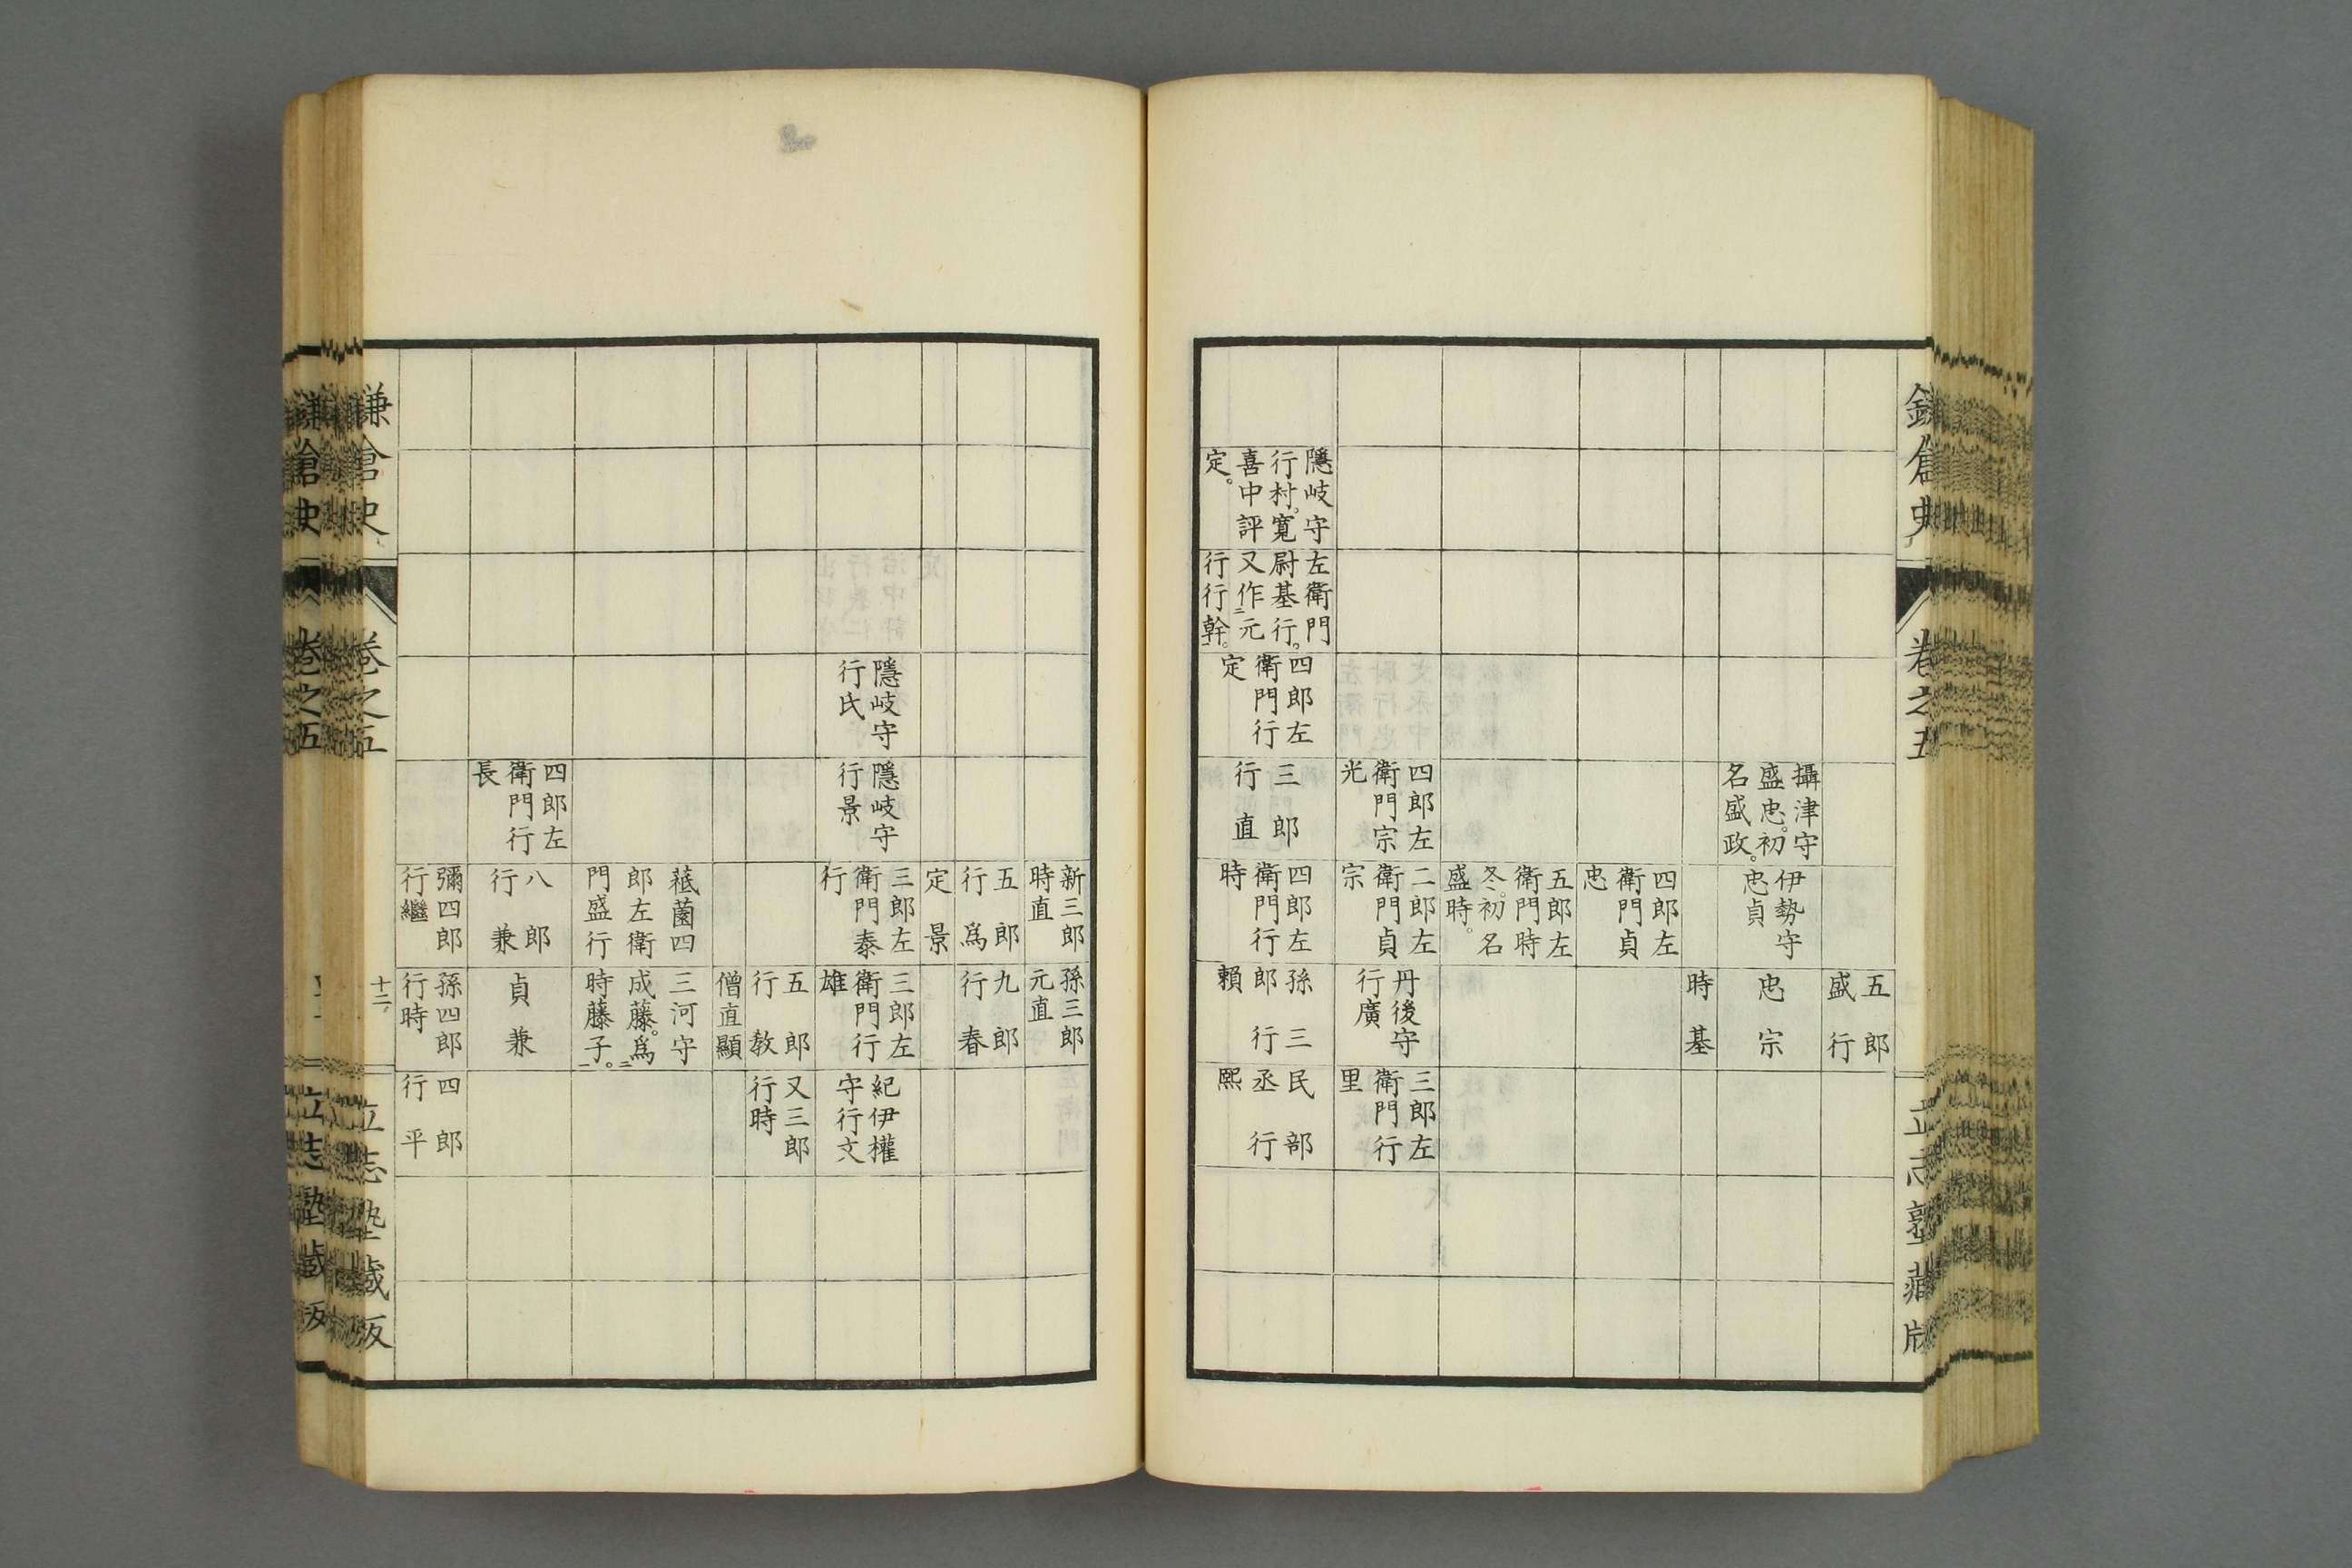 鎌倉史
卷之五
立志塾藏版
五郎
盛行
攝津守
盛忠。初
名盛政。
伊勢守
忠貞
忠宗
時基
四郎左
衛門貞
忠
五郎左
衛門時
冬。初名
盛時。
四郎左
衛門宗
光
二郎左
衛門貞
宗
丹後守
行廣
三郎左
衛門行
里
隱岐守
行村。寬
喜中評
定。
左衛門
尉基行。
又作二元
行行幹一。
四郎左
衛門行
定
三郎
行直
四郎左
衛門行
時
孫三
郎行
賴
民部
丞行
熙
新三郎
時直
孫三郎
元直
五郎
行爲
九郎
行春
定景
隱岐守
行氏
隱岐守
行景
三郎左
衛門泰
行
三郎左
衛門行
雄
紀伊權
守行文
五郎
行敎
又三郎
行時
僧直顯
薗四
郎左衛
門盛行
三河守
成藤。爲二
時藤子一。
四郎左
衛門行
長
八郎
行兼
貞兼
彌四郎
行繼
孫四郎
行時
四郎
行平
鎌倉史
卷之五
十二
立志塾藏版